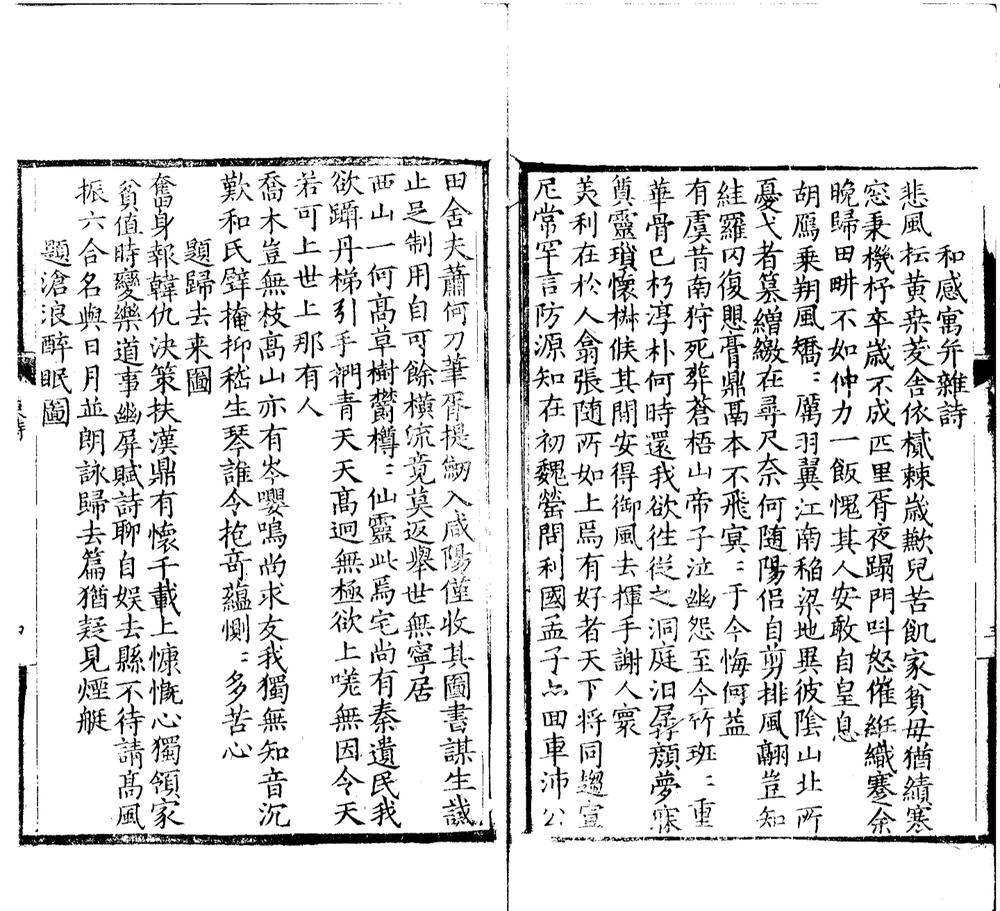 和感寓并雜詩
悲風耘黄桒菱舎依樲棘歲歉兒苦飢家貧母猶績寒
窓秉機杼卒歲不成匹里胥夜蹋門呌怒催絍織蹇余
晚歸田畊不如仲力一飯愧其人安敢自皇息
胡鴈乗朔風矯〻厲羽翼江南稲粱地異彼陰山北所
憂弋者慕繒繳在尋尺奈何随陽侣自剪排風翮豈知
絓羅冈復思膏鼎鬲本不飛冥〻于今悔何益
有虞昔南狩死葬蒼梧山帝子泣幽怨至今竹班〻重
華骨已朽淳朴何時還我欲徃従之洞庭汨孱顔夢寐
奠靈瑣懷椒候其閒安得御風去揮手謝人寰
美利在於人翕張随所如上焉有好者天下将同趨宣
尼常罕言防源知在初魏罃問利國孟子亦囬車沛公
田舎夫蕭何刀筆胥提劒入咸陽僅收其圖書謀生誠
止足制用自可餘横流竟莫返舉世無寧居
西山一何髙草樹欝樽〻仙靈此焉宅尚有秦遺民我
欲躡丹梯引手捫青天天髙迥無極欲上嘆無因令天
若可上世上那有人
喬木豈無枝髙山亦有岑嚶鳴尚求友我獨無知音沉
歎和氏璧掩抑嵇生琴誰令抱竒蘊惻〻多苦心
題歸去来圖
奮身報韓仇決策扶漢鼎有懷千載上慷慨心獨領家
貧值時變樂道事幽屏賦詩聊自娱去縣不待請髙風
振六合名與日月並朗詠歸去篇猶疑見煙艇
題滄浪醉眠圖